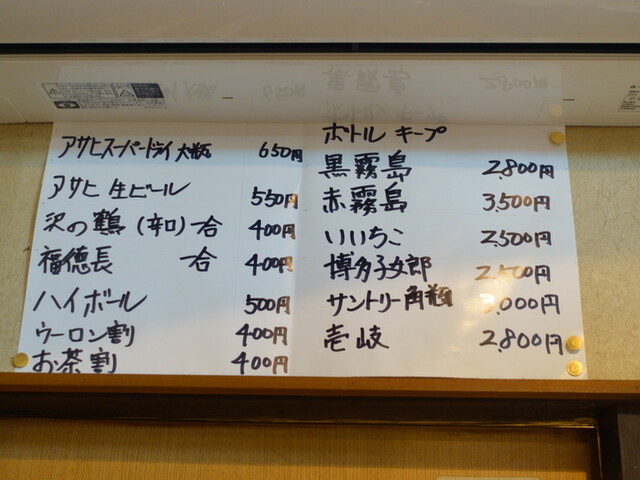 アサヒスーパードライ大瓶 650円
アサヒ生ビール 550円
沢の鶴(辛口)一合 400円
福徳長 一合 400円
ハイボール 500円
ウーロン割 400円
お茶割 400円
ボトルキープ
黒霧島 2,800円
赤霧島 3,500円
いいちこ 2,500円
博多子女郎 2,500円
サントリー角瓶 ,000円
壱岐 2,800円